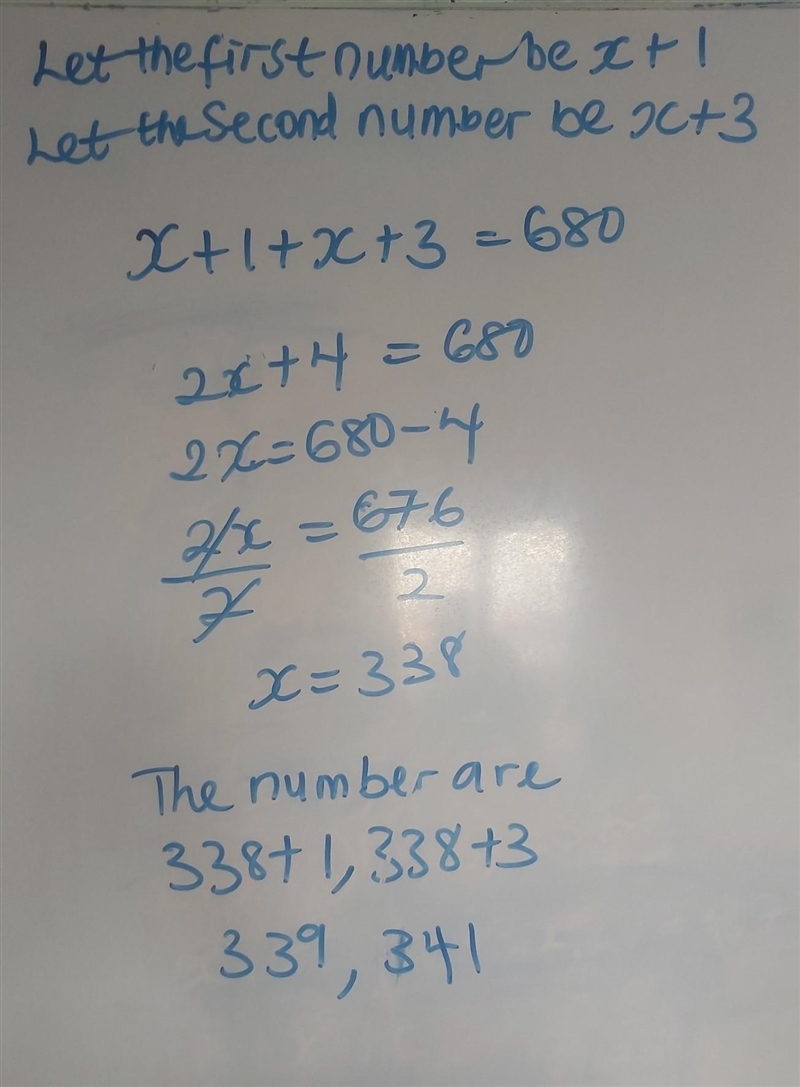 Let the first number be x+1
Let the Second number be x+3
x+1+x+3=680
2x+4=680
2x=680-4
2x/2=676/2
x=338
The number are
338+1, 338+3
339, 341